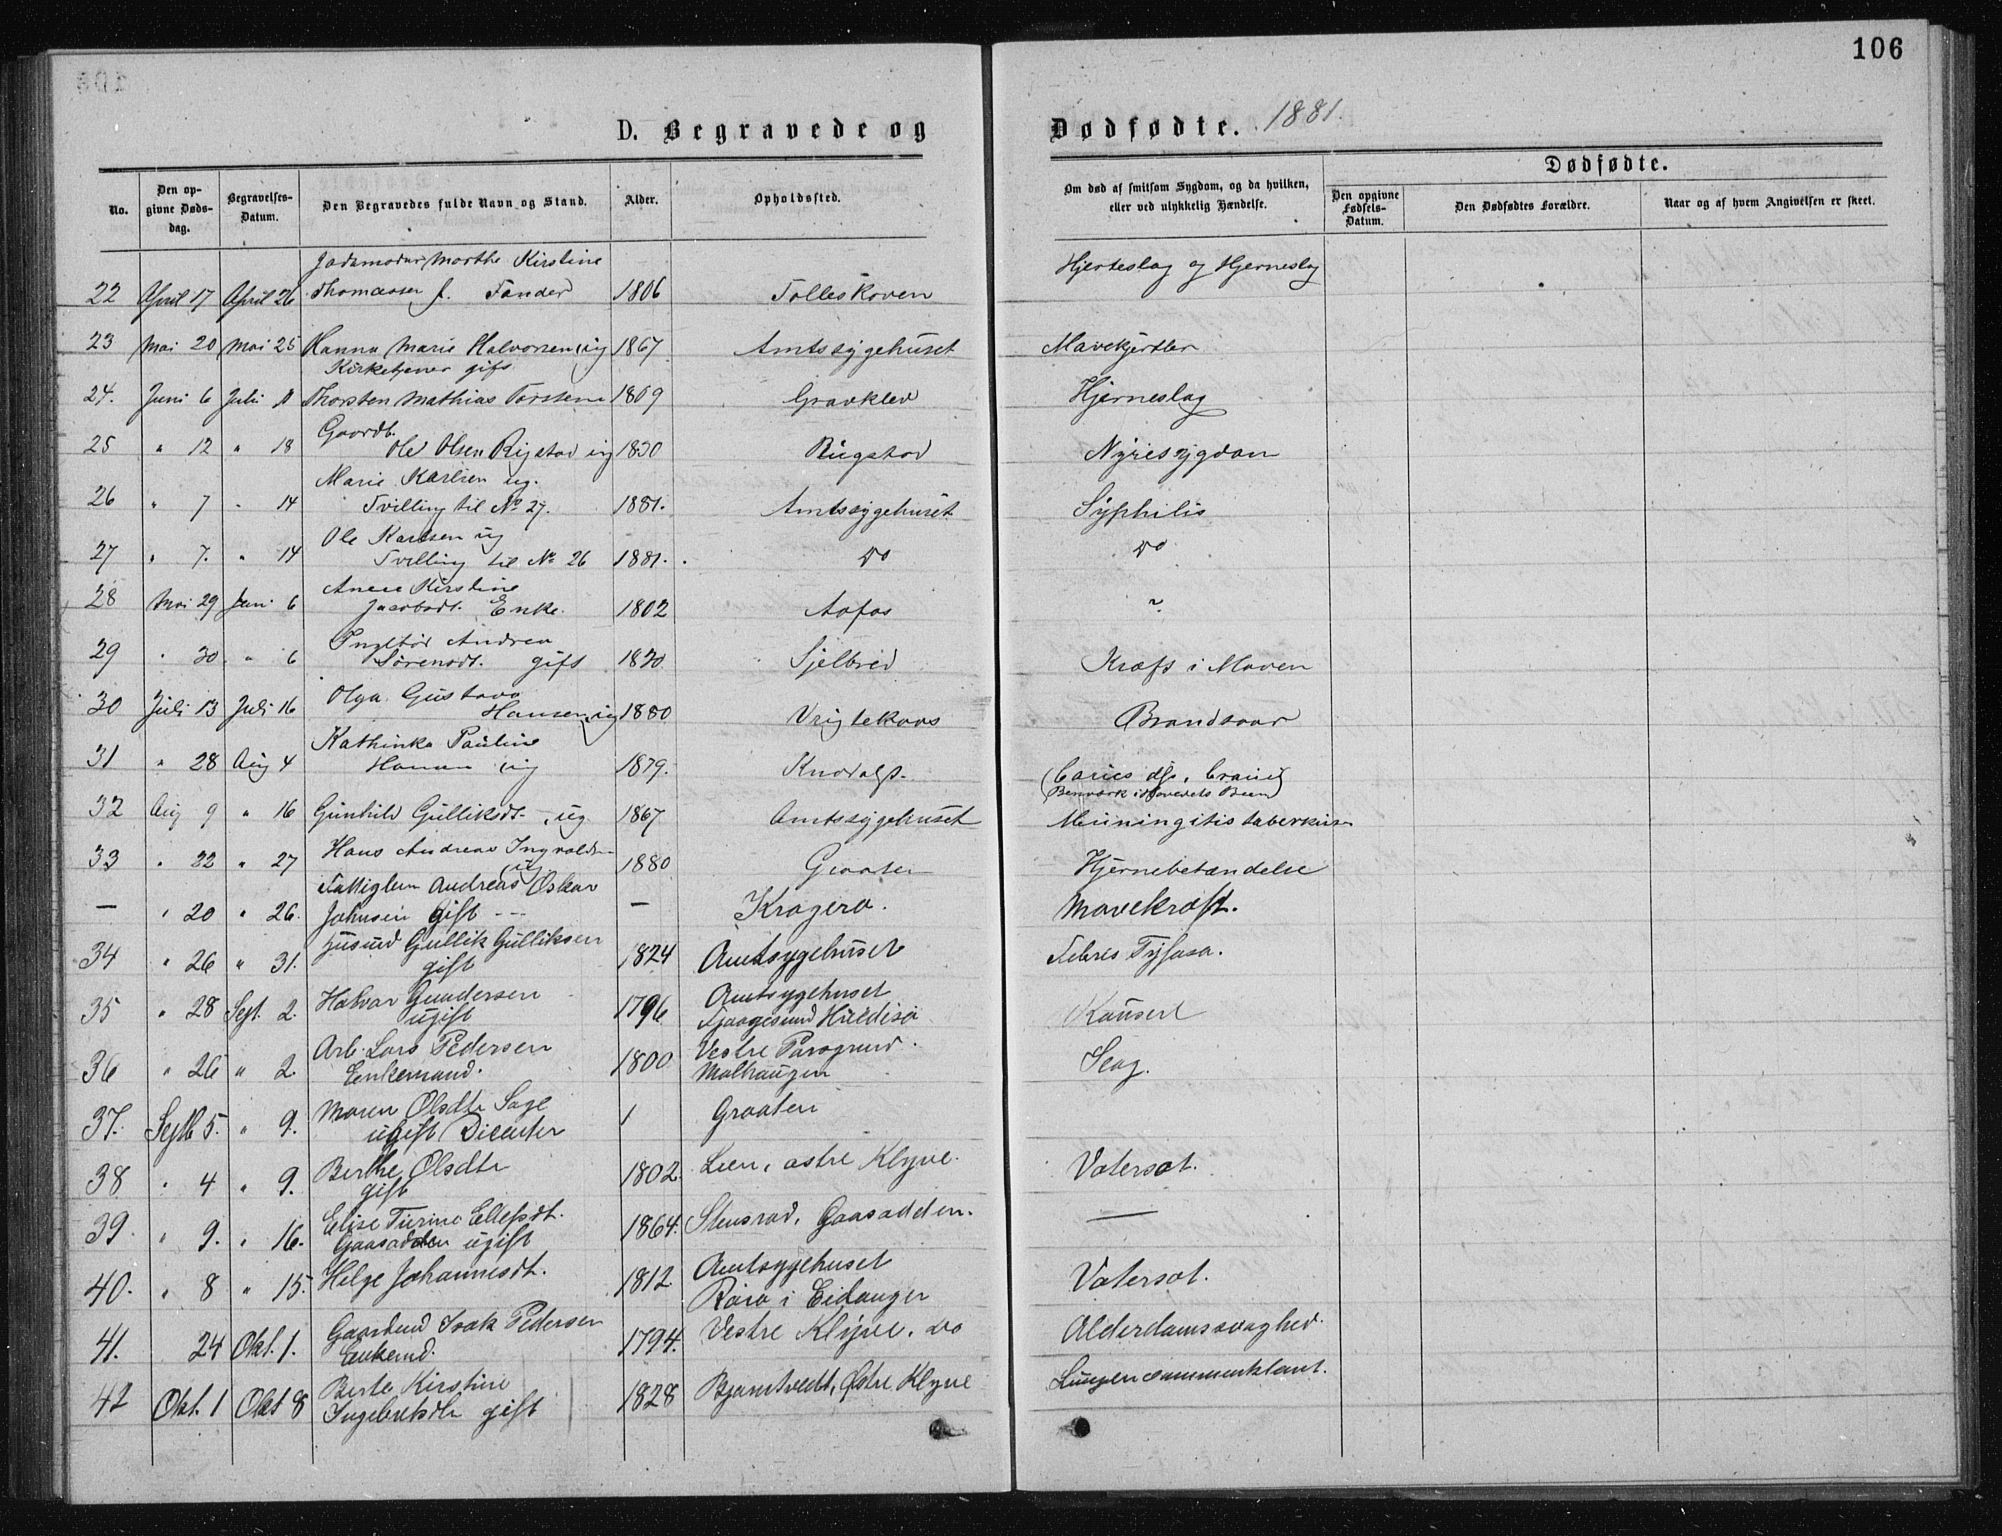 106
D. Begravede og
Dødfødte. 1881.
No.
Den op-
givne Døds-
dag.
Begravelses-
Datum.
Den Begravedes fulde Navn og Stand.
Alder.
Opholdssted.
Om død af smitsom Sygdom, og da hvilken,
eller ved ulykkelig Hændelse.
Dødfødte.
Den opgivne
Fødsels-
Datum.
Den Dødfødtes Forældre.
Naar og af hvem Angivelsen er skeet.
Jodsmoder Marthe Kirstine
22 April 17 April 26 Thomassen f. Tander 1806 Tolleskoven Hjerteslag og Hjerneslag
23 Mai 20 Mai 25 Hanna Marie Halvorsen, ug 1867 Amtssygehuset Mavekjertler
Kirketjener gift
24. Juni 6 Juli 11 Thorsten Mathias Torsten 1809 Gravklev Hjerneslag
Gaardb.
25 " 12 " 18 Ole Olsen Rigstad ug 1830 Rugstad Nyresygdom
Marie Karlsen ug.
26 " 7 " 14 Tvilling til No 27. 1881. Amtssygehuset Syphilis
Ole Karlsen ug
27 " 7. " 14 Tvilling til No 26 1881. Do Do
Anne Kirstine
28 Mai 29 Juni 6 Jacobsdt. Enke. 1802 Aafos ?
Ingebor Andrea
29 " 30 " 6 Sørensdt. gift 1830 Sjelbred Kræft i Maven
Olga Gustava
30 Juli 13 Juli 16 Hansen, ug 1880 Vrigtekaas Brandsaar
Kathinka Pauline
31 " 28 Aug 4 Hansen ug 1879. Knardalst. Caries dss. Cranii
(Benværk i Hovedets Been)
32 Aug 9 " 16 Gunhild Gulliksdt. ug 1867 Amtssygehuset Meningitis tuberkul
Hans Andreas Ingvalds
33 " 22 " 27 ug 1880 Graaten Hjernebetændelse
Fattiglem Andreas Oskar
— " 20 " 26. Johnsen gift — — Kragerø. Mavekræft.
Husmd Gullik Gulliksen
34 " 26 " 31. gift 1824 Amtsygehuset Febres Tyfosa.
35 " 28 Sept. 2. Halvar Gundersen 1796 Amtsygehuset
ugift
36 " 26 " 2 Arb. Lars Pedersen 1800 Vestre Porsgrund.
Enkemand. Malhaugen
37. Septb 5. " 9. Maren Olsdtr Sage 1 Graaten
ugift
38 " 4 " 9. Berthe Olsdtr 1802. Lien, østre Klyve. Vatersot.
gift
39 " 9. " 16. Elise Turine Ellefsdt. 1864. Stensrød, Gaasodden. —
Gaasodden ugift
40. " 8 " 15. Helge Johannesdt. 1812 Amtsygehuset Vatersot.
Røra i Eidanger
41. 24 Okt. 1. Gaardmd Isak Pedersen 1794. Vestre Klyve. do Alderdomssvaghed.
Enkemd.
42 Okt. 1 Okt 8 Berte Kirstine 1828 Bjøntvedt, Østre Klyve
Ingebretsdtr gift